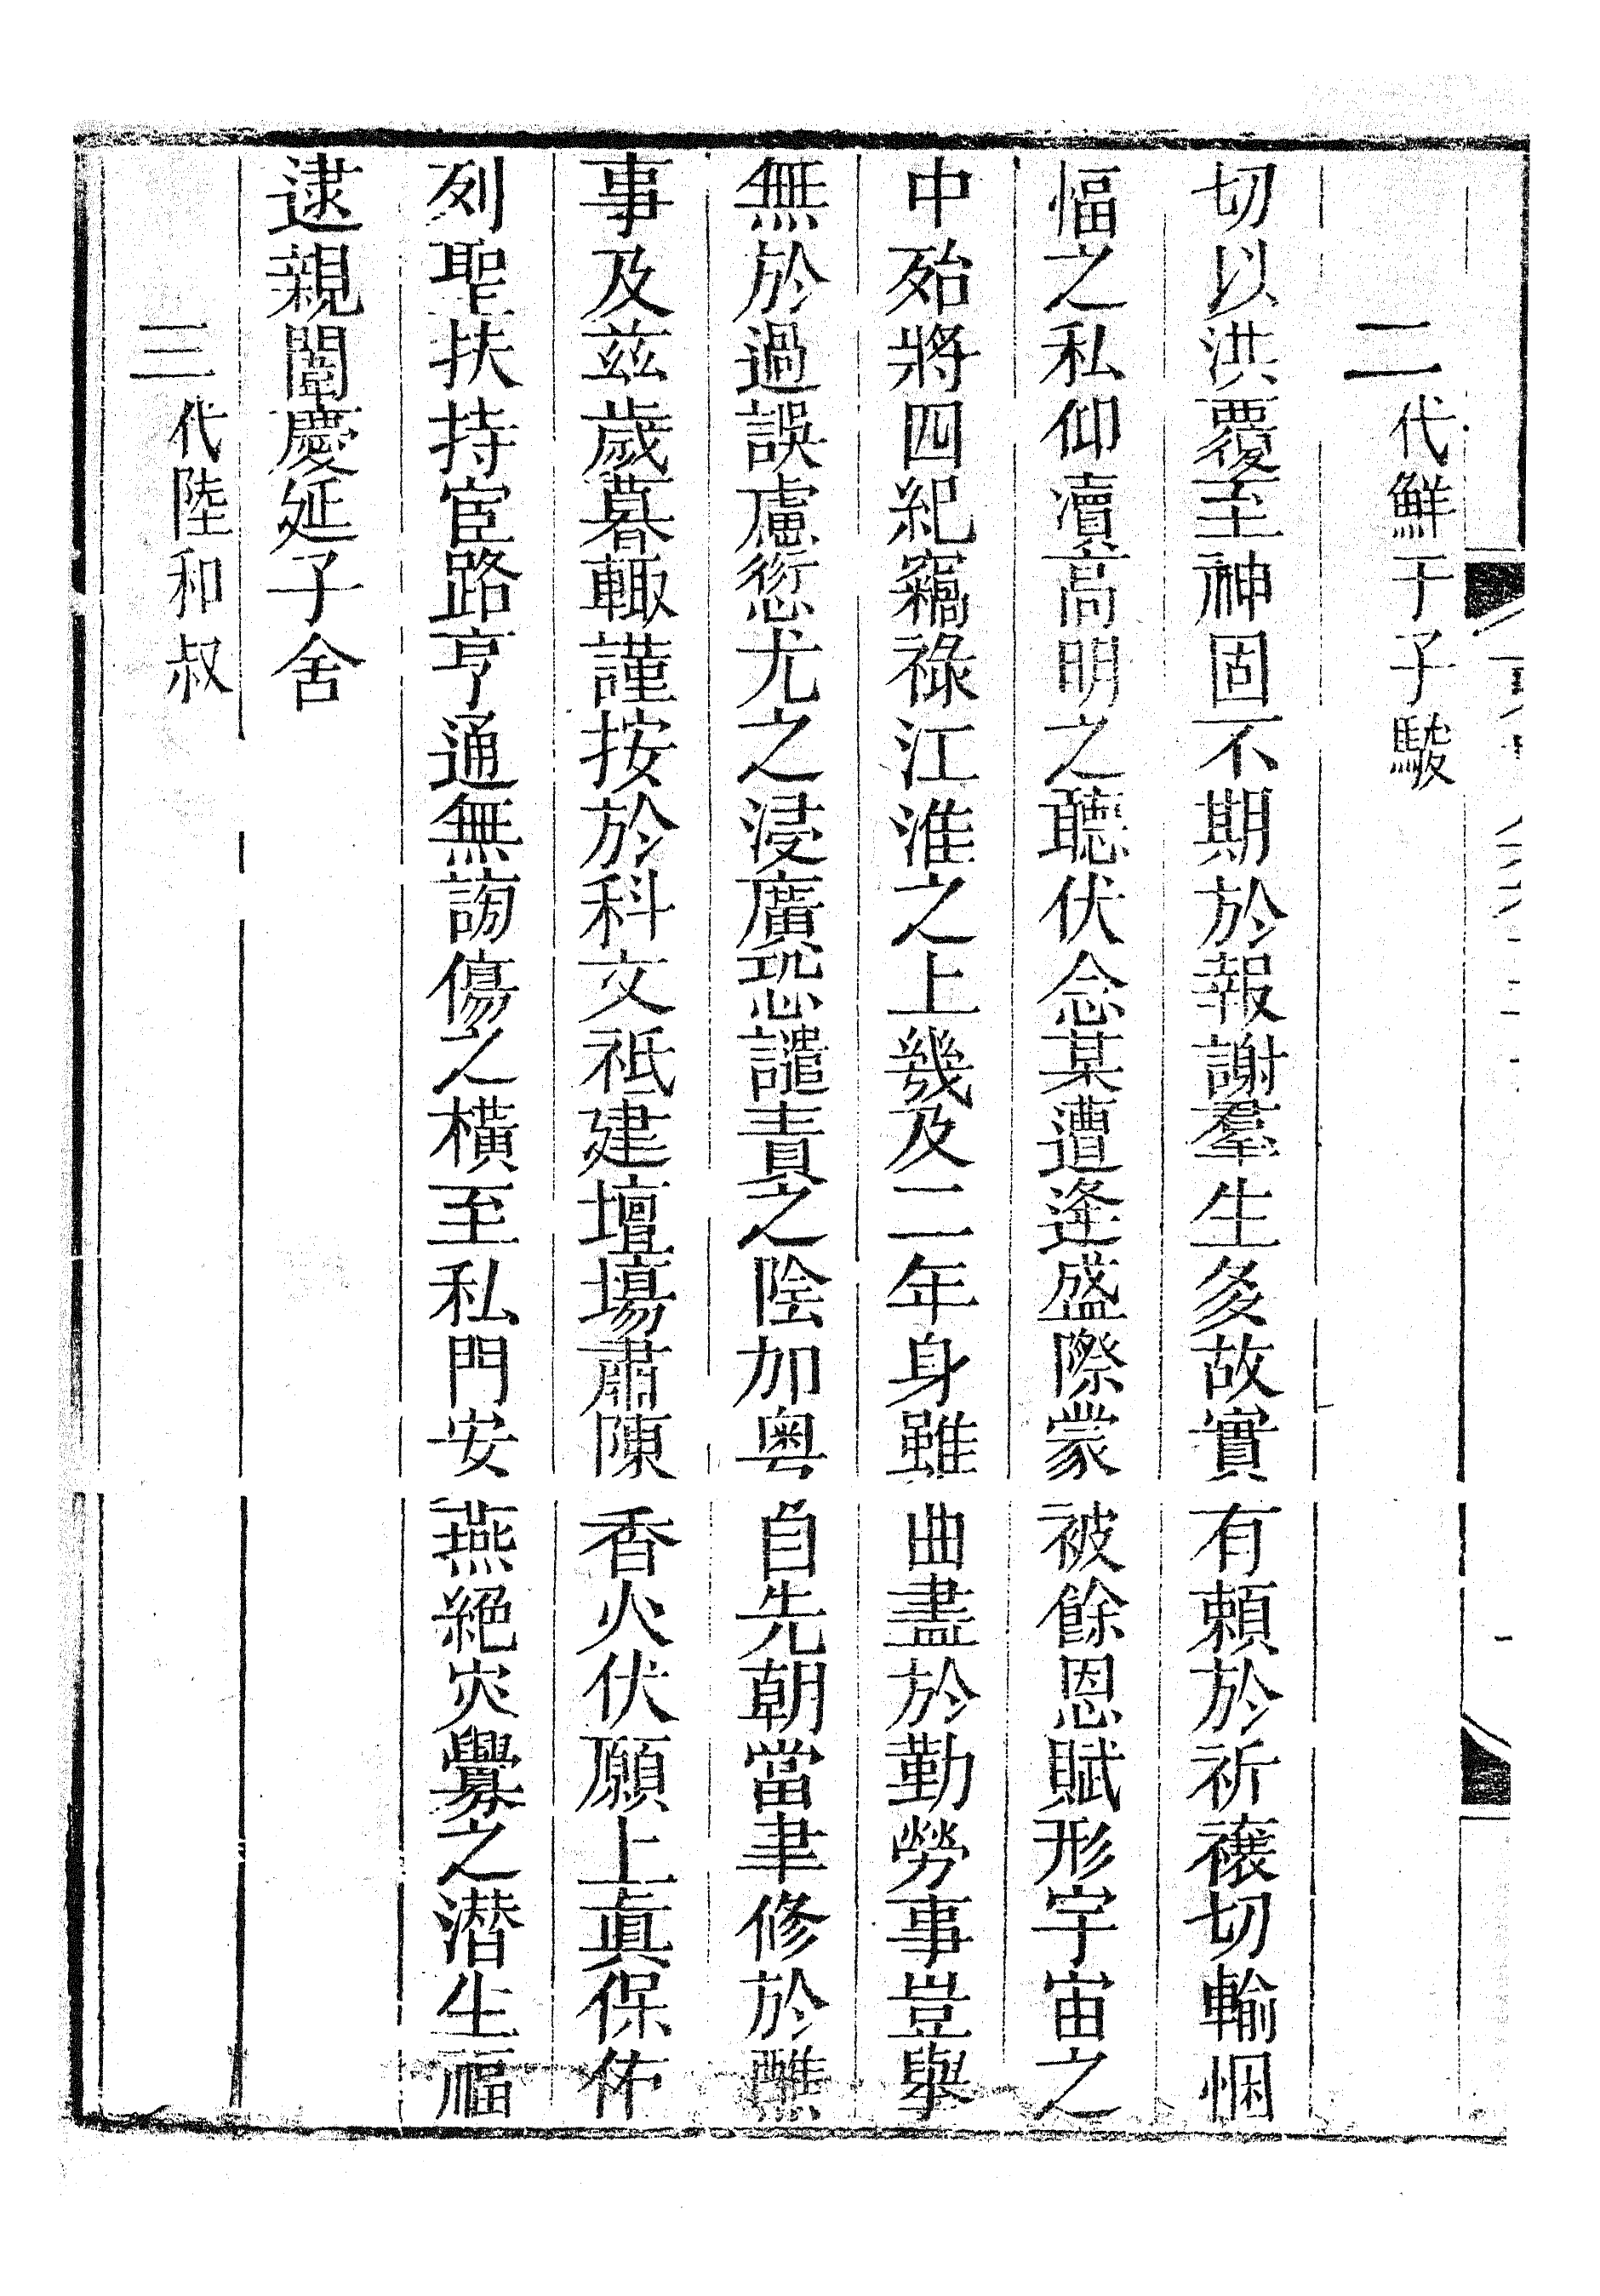 二代鮮于子駿
切以洪覆至神固不期於報謝羣生多故實有賴於祈禳切輸悃
愊之私仰瀆高明之聽伏念某遭逢盛際蒙被餘恩賦形宇宙之
中殆將四紀竊祿江淮之上幾及二年身雖曲盡於勤勞事豈舉
無於過誤慮愆尤之浸廣恐譴責之陰加粤自先朝當聿修於醮
事及兹歲暮輙謹按於科文祇建壇場肅陳香火伏願上眞保佑
列聖扶持宦路亨通無謗傷之橫至私門安燕絶灾釁之潜生福
逮親闈慶延子舍
三代陸和叔